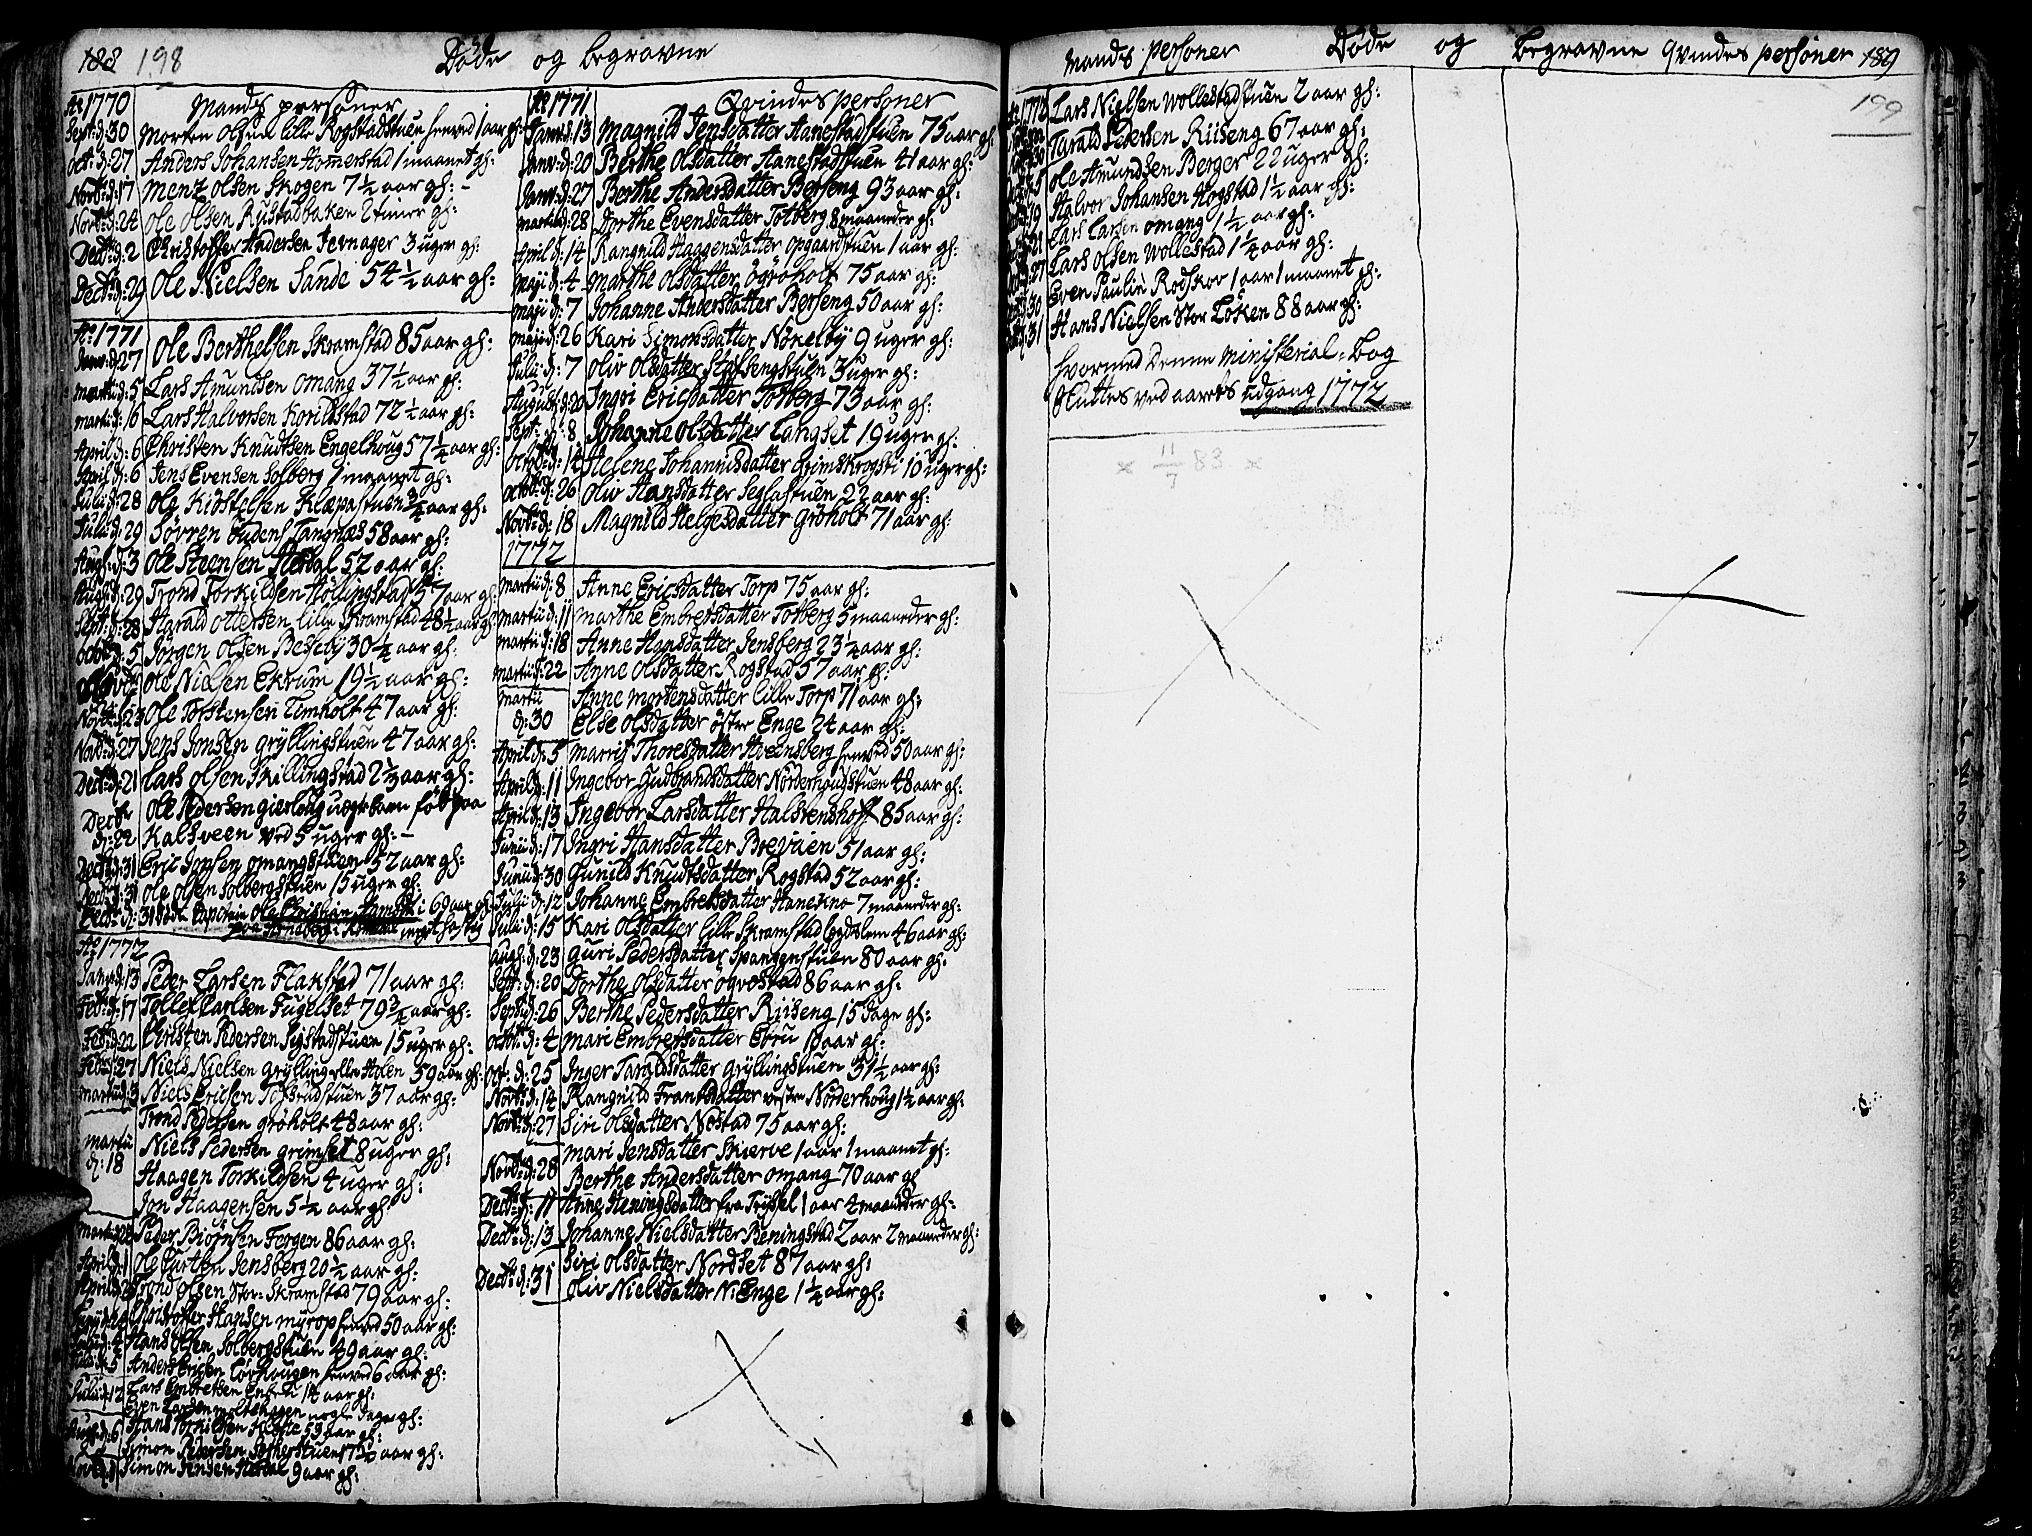 188 198 Døde og begravne
Ao 1770 Mands personer
Sept: d: 30 Morten Olsen lille Rogstadstuen henved 1 aar gl:
Oct: d: 27 Anders Johansen Hommerstad 1 maanet gl:
Novb: d: 17 Menz Olsen Skogen 7 1/2 aar gl:
Novb: d: 24 Ole Olsen Rustadbaken 2 timer gl:
Decb: d: 2 Christopher Andersen Jernager 3 uger gl:
Decb: d: 29 Ole Nielsen Sande 54 1/2 aar gl:
Ao 1771
Janv: d: 27 Ole Berthelsen Skramstad 85 aar gl:
Martii d: 5 Lars Amundsen Omang 37 1/2 aar gl:
Martii d: 16 Lars Halvorsen 72 1/2 aar gl:
April d: 6 Christen Knudtsen Engelhoug 57 1/2 aar gl:
April d: 6 Jens Evensen Solberg 1 maanet gl:
Julii d: 28 Ole Kiøstelsen Klæpastuen 3/4 aar gl:
Julii d: 29 Søvren Tangnæs 58 aar gl:
Aug: d: 3 Ole Steensen 52 aar gl:
Aug: d: 29 Trond Torkildsen Hollingstad 57 aar gl:
Sept: d: 28 Harald Ottersen lille Skramstad 48 1/2 aar gl:
Octob: d: 5 Jørgen Olsen Beseby 30 1/4 aar gl:
Ole Nielsen Ekrum 19 1/2 aar gl:
Novb: d: 23 Ole Tostensen Timholt 47 aar gl:
Novb: d: 27 Jens Jonsen Gryllingstuen 47 aar gl:
Decb: d: 21 Lars Olsen Skillingstad 2 1/2 aar gl:
Decb: d: 22 Ole Pedersen født paa
Kalsveen ved 5 uger gl:
Decb: d: 31 Eric Jonsen Omangstuen 52 aar gl:
Decb: d: 31 Ole Olsen Solbergstuen 15 uger gl:
Decb: d: 31 Capitain Ole Christian 60 aar gl:
Ao 1772
Janv: d: 13 Peder Larsen Flakstad 71 aar gl:
Feb: d: 17 Tollef Carlsen Fugelset 79 3/4 aar gl:
Feb: d: 22 Christen Pedersen Sigstadstuen 15 uger gl:
Feb: d: 27 Niels Nielsen Grylling eller Holen 59 aar gl:
Martii d: 3 Niels Ericsen Tofstadstuen 37 aar gl:
Trond Pedersen Grøholt 48 aar gl:
Martii d: 18 Niels Pedersen Grimset 8 uger gl:
Haagen Torkildsen 4 uger gl:
Jon Haagensen 5 1/2 aar gl:
Martii d: 28 Peder Biørnsen Fergen 86 aar gl:
April d: 1 Ole Larsen Jensberg 20 1/2 aar gl:
April d: Trond Olsen Stor-Skramstad 79 aar gl:
Christopher Hansen Myrop henved 50 aar gl:
Julii d: 4 Hans Olsen Solbergstuen 49 aar gl:
Julii d: 5 Anders Ericsen henved 6 aar gl:
Julii d: 12 Lars Embretsen 14 aar gl:
Even nogle dage gl:
Aug: d: 6 Hans Torkildsen 59 aar gl:
Simon Pedersen 17 1/2 aar gl:
Simon Jensen 9 aar gl:
Ao 1771 Qvindes personer
Janv: d: 13 Magnild Jensdatter Aanestadstuen 75 aar gl:
Janv: d: 20 Berthe Olsdatter Aanestadstuen 41 aar gl:
Janv: d: 27 Berthe Andersdatter Berseng 93 aar gl:
Martii d: 28 Dorthe Evensdatter Totberg 8 maaneder gl:
April d: 14 Rangnild Haagensdatter Opgaardstuen 1 aar gl:
Maji d: 4 Marthe Olsdatter Ögröholt 75 aar gl:
Maji d: 7 Johanne Andersdatter Berseng 50 aar gl:
Maji d: 26 Kari Simonsdatter Nökelby 9 uger gl:
Julii d: 7 Oliv Olsdatter Stafsengstuen 3 uger gl:
August d: 20 Ingri Ericsdatter Totberg 73 aar gl:
Sept: d: 8 Johanne Olsdatter Langset 19 uger gl:
Octb: d: 14 Helene Johannisdatter Grimskrogski 10 uger gl:
Octob: d: 26 Oliv Hansdatter Seglastuen 22 aar gl:
Novb: d: 18 Magnild Helgesdatter Gröholt 71 aar gl:
1772
Martii d: 8 Anne Ericsdatter Torp 75 aar gl:
Martii d: 11 Marthe Embretsdatter Totberg 5 maaneder gl:
Martii d: 18 Anne Hansdatter Jensberg 23 1/4 aar gl:
Martii d: 22 Anne Olsdatter Rogstad 57 aar gl:
Martii d: 30 Anne Mortensdatter lille Torp 71 aar gl:
Else Olsdatter öster Enge 24 aar gl:
April d: 5 Marrit Thoresdatter Hvensberg henved 50 aar gl:
April d: 11 Ingebor Gudbrandsdatter Nörderhougstuen 48 aar gl:
April d: 13 Ingebor Larsdatter Halstenshoff 85 aar gl:
Junii d: 17 Ingri Hansdatter Brevien 51 aar gl:
Junii d: 30 Gunild Knudtsdatter Rogstad 52 aar gl:
Julii d: 12 Johanne Embretsdatter Hanekno 7 maaneder gl:
Julii d: 15 Kari Olsdatter lille Skramstad bygdslem 46 aar gl:
Aug: d: 23 Guri Pedersdatter Spangenstuen 80 aar gl:
Sept: d: 20 Dorthe Olsdatter Ögvostad 86 aar gl:
Sept: d: 26 Berthe Pedersdatter Riiseng 15 dage gl:
Octob: d: 4 Mari Embretsdatter Ebru 19 aar gl:
Oct: d: 25 Inger Taraldsdatter Gryllingstuen 51 1/2 aar gl:
Novb: d: 14 Rangnild Frantsdatter vestre Nörderhoug 1 1/2 aar gl:
Novb: d: 27 Siri Olsdatter Nöstad 75 aar gl:
Novb: d: 28 Mari Jensdatter Skierve 1 aar 1 maanet gl:
Berthe Andersdatter Omang 70 aar gl
Decb: d: 11 Anne Heningsdatter fra Tryssel 1 aar 4 maaneder gl:
Decb: d: 13 Johanne Nielsdatter Beningstad 2 aar 2 maaneder gl:
Siri Olsdatter Nordset 87 aar gl:
Decb: d: 31 Oliv Nielsdatter Ni Enge 1 1/4 aar gl:
Mands personer Døde og begravne Qvindes personer 189
199
Ao 1772 Lars Nielsen Wollestadstuen 2 aar gl:
Tarald Pedersen Riiseng 67 aar gl:
Ole Amundsen Berger 22 uger gl:
Halvor Johansen Hogstad 1 1/2 aar gl:
Lars Larsen Omang 1 1/2 aar gl:
Lars Olsen Wollestad 1 1/4 aar gl:
Even Paulin Rodskov 1 aar 1 maanet gl:
31 Hans Nielsen Stor Löken 88 aar gl:
hvormed denne Ministerial-Bog
sluttes ved aarets udgang 1772
x 11/7 83 x